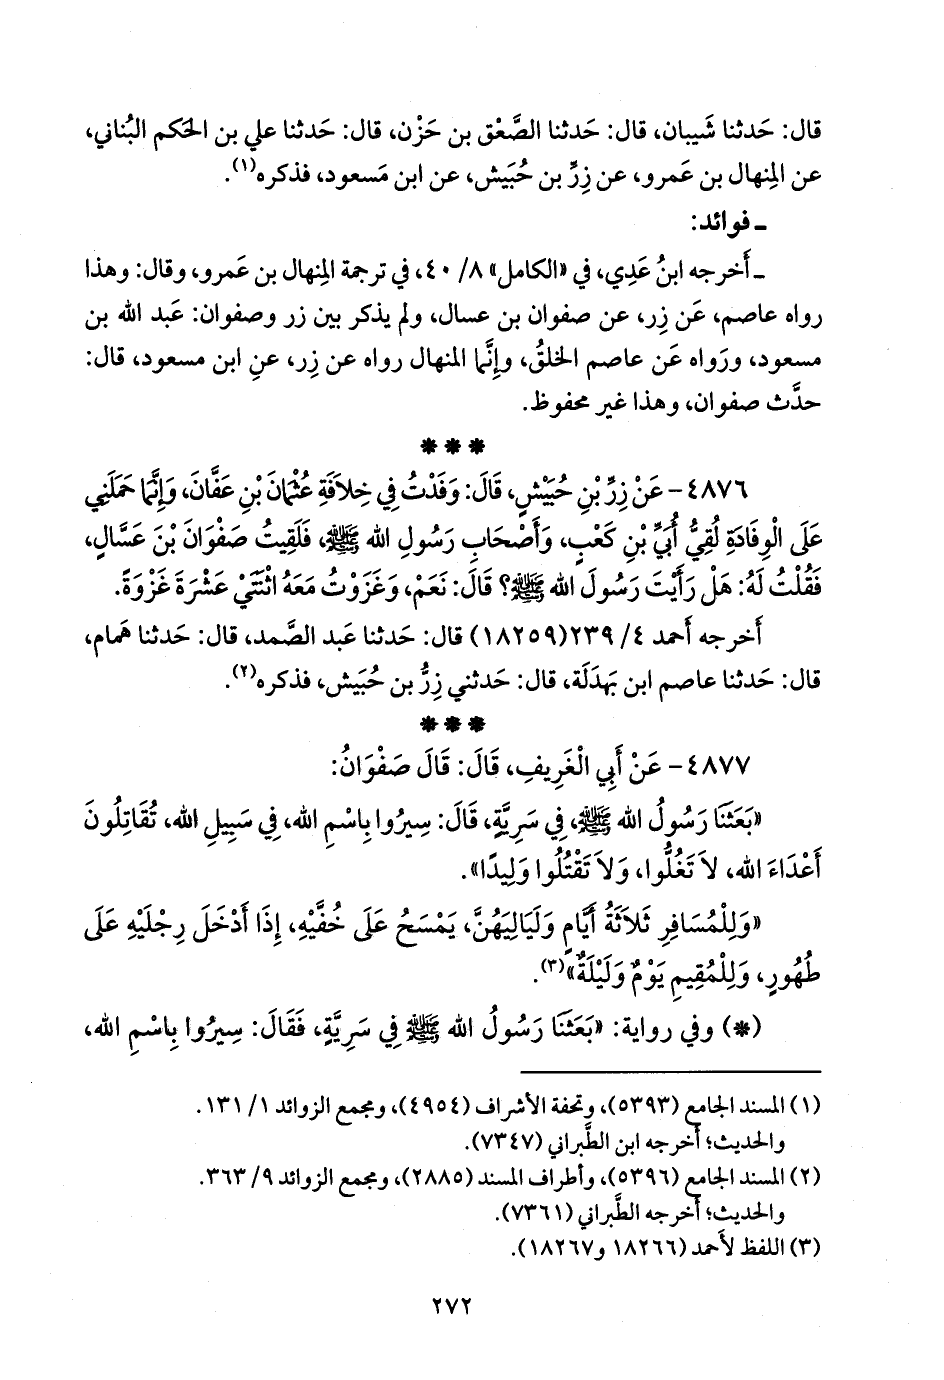 قال: حَدثنا شَيبان، قال: حَدثنا الصَّعْق بن حَزْن، قال: حَدثنا علي بن الحَكم البُناني،
عن المِنهال بن عَمرو، عن زِرِّ بن حُبَيش، عن ابن مَسعود، فذكره(١).
ـ فوائد:
ـ أَخرجه ابنُ عَدِي، في «الكامل» ٨/ ٤٠، في ترجمة المِنهال بن عَمرو، وقال: وهذا
رواه عاصم، عَن زِر، عن صفوان بن عسال، ولم يذكر بين زر وصفوان: عَبد الله بن
مسعود، ورَواه عَن عاصم الخلقُ، وإِنَّما المنهال رواه عن زِر، عنِ ابن مسعود، قال:
حدَّث صفوان، وهذا غير محفوظ.
* * *
٤٨٧٦- عَنْ زِرِّ بْنِ حُبَيْشٍ، قَالَ: وَفَدْتُ فِي خِلاَفَةِ عُثْمَانَ بْنِ عَفَّانَ، وَإِنَّمَا حَمَلَنِي
عَلَى الْوِفَادَةِ لُقِيُّ أُبَيِّ بْنِ كَعْبٍ، وَأَصْحَابِ رَسُولِ الله ﷺ، فَلَقِيتُ صَفْوَانَ بْنَ عَسَّالٍ،
فَقُلْتُ لَهُ: هَلْ رَأَيْتَ رَسُولَ الله ﷺ؟ قَالَ: نَعَمْ، وَغَزَوْتُ مَعَهُ اثْنَتَيْ عَشْرَةَ غَزْوَةً.
أَخرجه أَحمد ٤/ ٢٣٩(١٨٢٥٩) قال: حَدثنا عَبد الصَّمد، قال: حَدثنا هَمام،
قال: حَدثنا عاصم ابن بَهدَلَة، قال: حَدثني زِرُّ بن حُبَيش، فذكره(٢).
* * *
٤٨٧٧- عَنْ أَبِي الْغَرِيفِ، قَالَ: قَالَ صَفْوَانُ:
«بَعَثَنَا رَسُولُ الله ﷺ، فِي سَرِيَّةٍ، قَالَ: سِيرُوا بِاسْمِ الله، فِي سَبِيلِ الله، تُقَاتِلُونَ
أَعْدَاءَ الله، لاَ تَغُلُّوا، وَلاَ تَقْتُلُوا وَلِيدًا».
«وَلِلْمُسَافِرِ ثَلاَثَةُ أَيَّامٍ وَلَيَالِيهُنَّ، يَمْسَحُ عَلَى خُفَّيْهِ، إِذَا أَدْخَلَ رِجْلَيْهِ عَلَى
طُهُورٍ، وَلِلْمُقِيمِ يَوْمٌ وَلَيْلَةٌ»(٣).
(*) وفي رواية: «بَعَثَنَا رَسُولُ الله ﷺ فِي سَرِيَّةٍ، فَقَالَ: سِيرُوا بِاسْمِ الله،
(١) المسند الجامع (٥٣٩٣)، وتحفة الأشراف (٤٩٥٤)، ومجمع الزوائد ١/ ١٣١.
والحديث؛ أخرجه ابن الطَّبراني (٧٣٤٧).
(٢) المسند الجامع (٥٣٩٦)، وأطراف المسند (٢٨٨٥)، ومجمع الزوائد ٩/ ٣٦٣.
والحديث؛ أخرجه الطَّبراني (٧٣٦١).
(٣) اللفظ لأحمد (١٨٢٦٦ و١٨٢٦٧).
٢٧٢